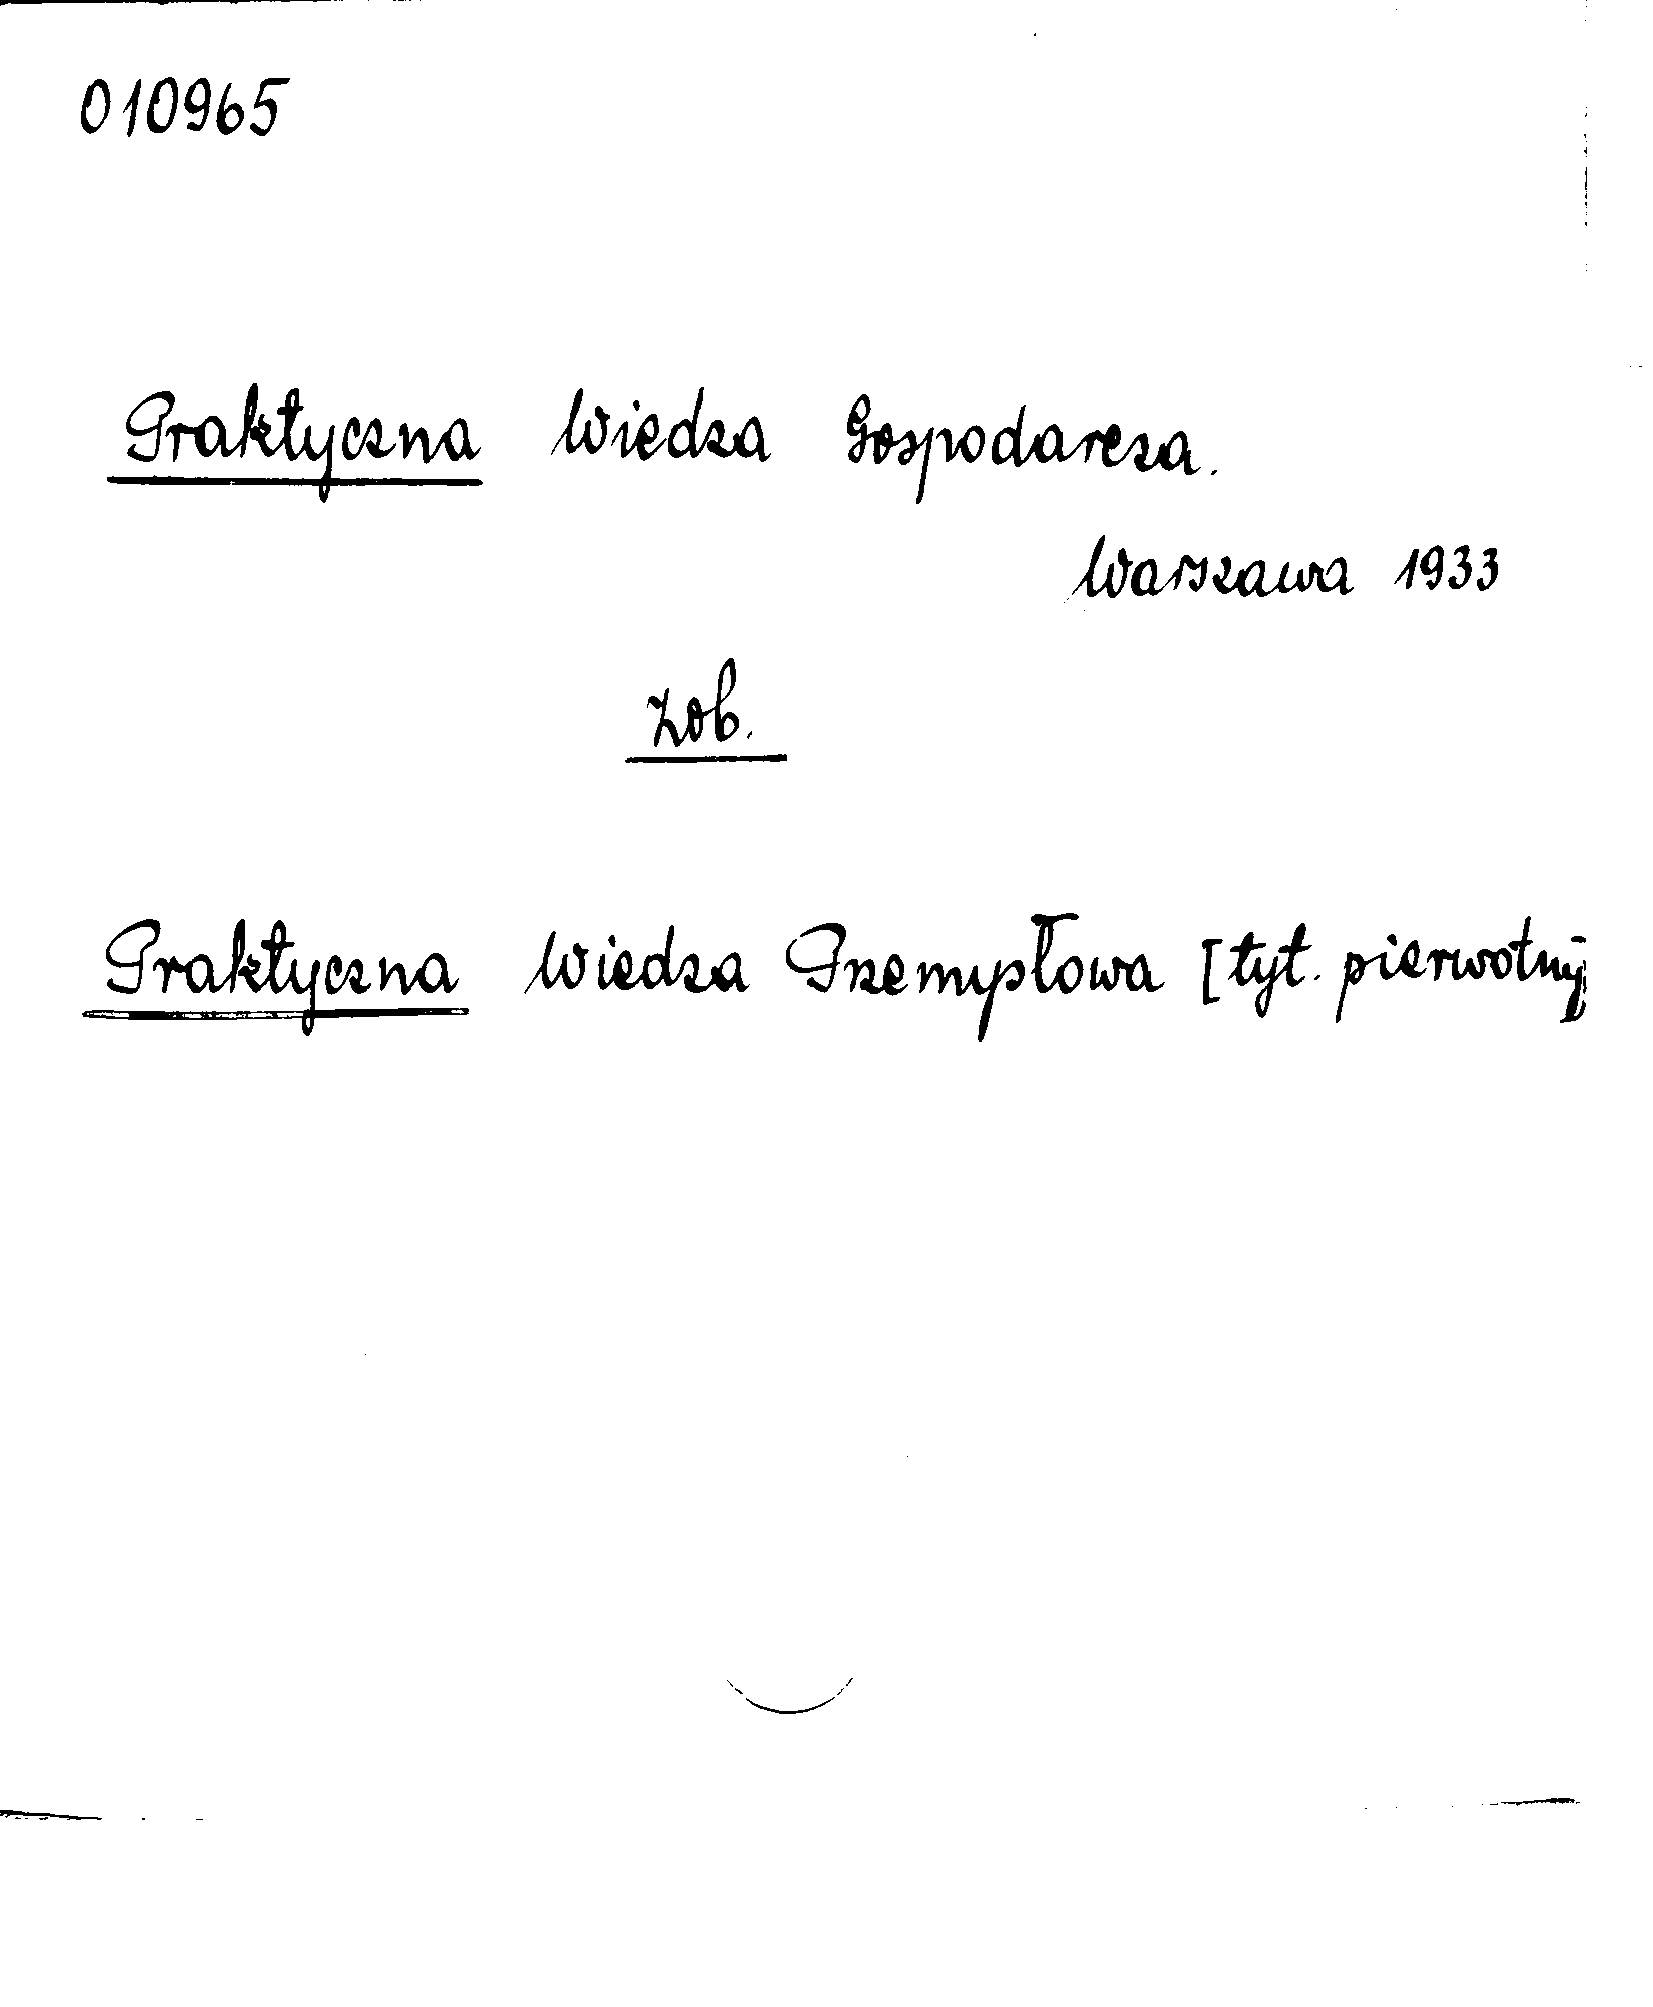 010965
Praktyczna Wiedza Gospodarcza.
Warszawa 1933
zob.
Praktyczna Wiedza Przemysłowa [tyt. pierwotny]